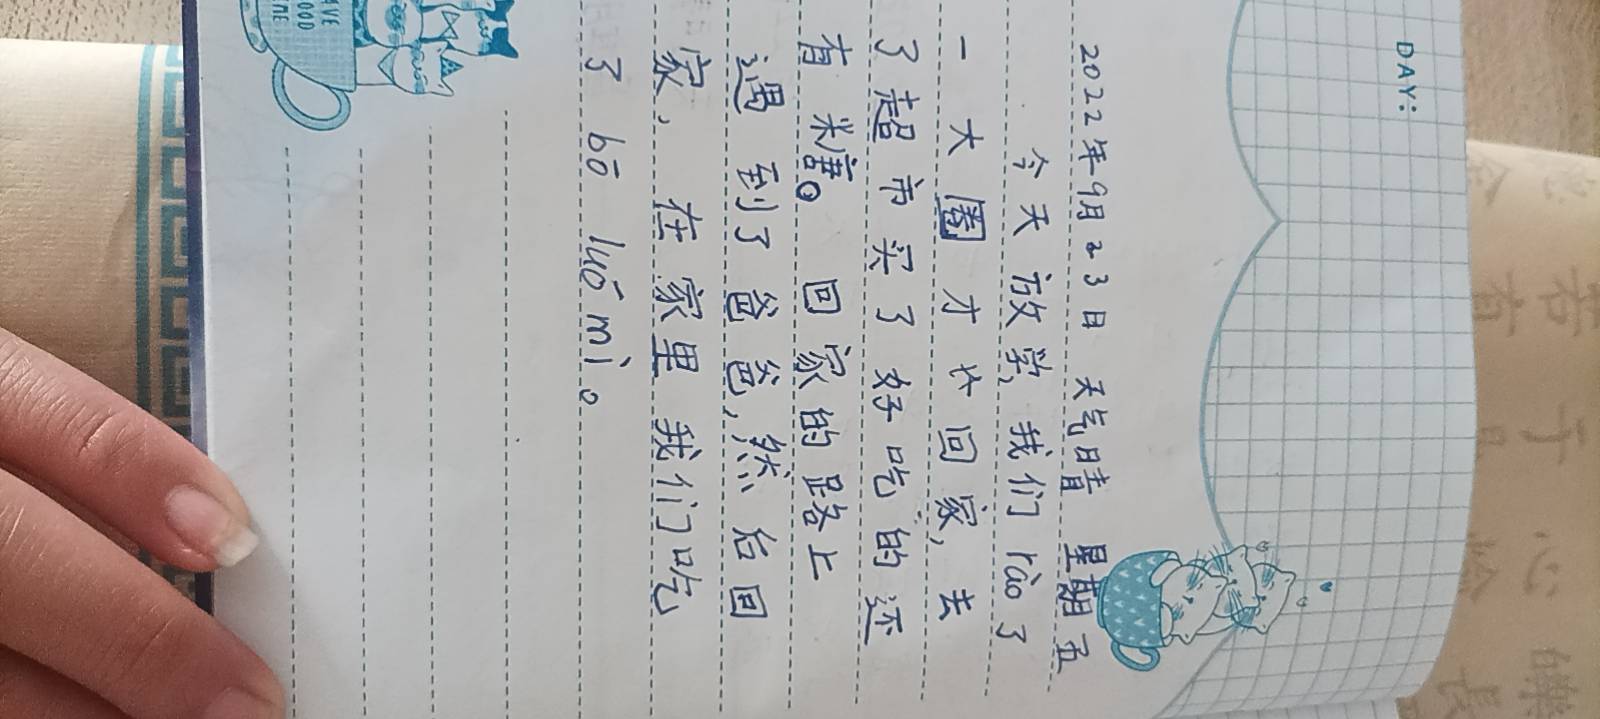 DAY:
2022年9月23日 天气晴 星期五
今天放学,我们rào了
一大圈才回家,去
了超市买了好好吃的还
有糖。回家的路上
遇到了爸爸,然后回
家,在家里我们吃
了bō luō mì。